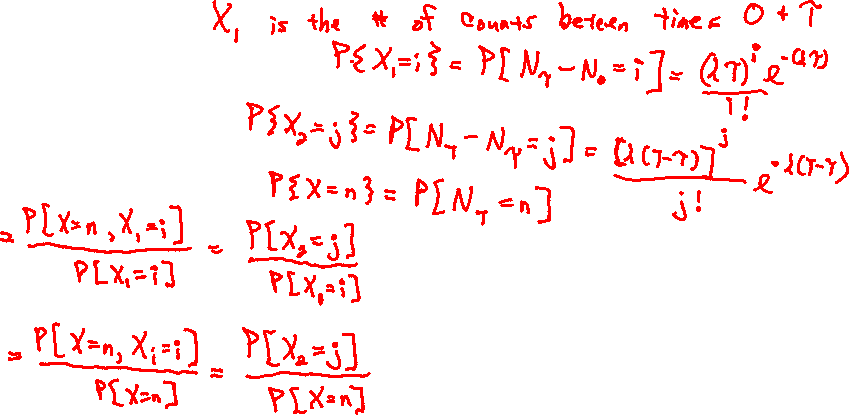 X₁ is the # of counts between times 0 + τ
P{X₁=i} = P[N_τ − N₀ = i] = (λτ)^i/i! e^-(λτ)
P{X₂=j} = P[N_T − N_τ = j] = [λ(T-τ)]^j/j! e^-λ(T-τ)
P{X=n} = P[N_T = n]
= P[X=n, X₁=i]/P[X₁=i] = P[X₂=j]/P[X₁=i]
= P[X=n, X₁=i]/P[X=n] = P[X₂=j]/P[X=n]